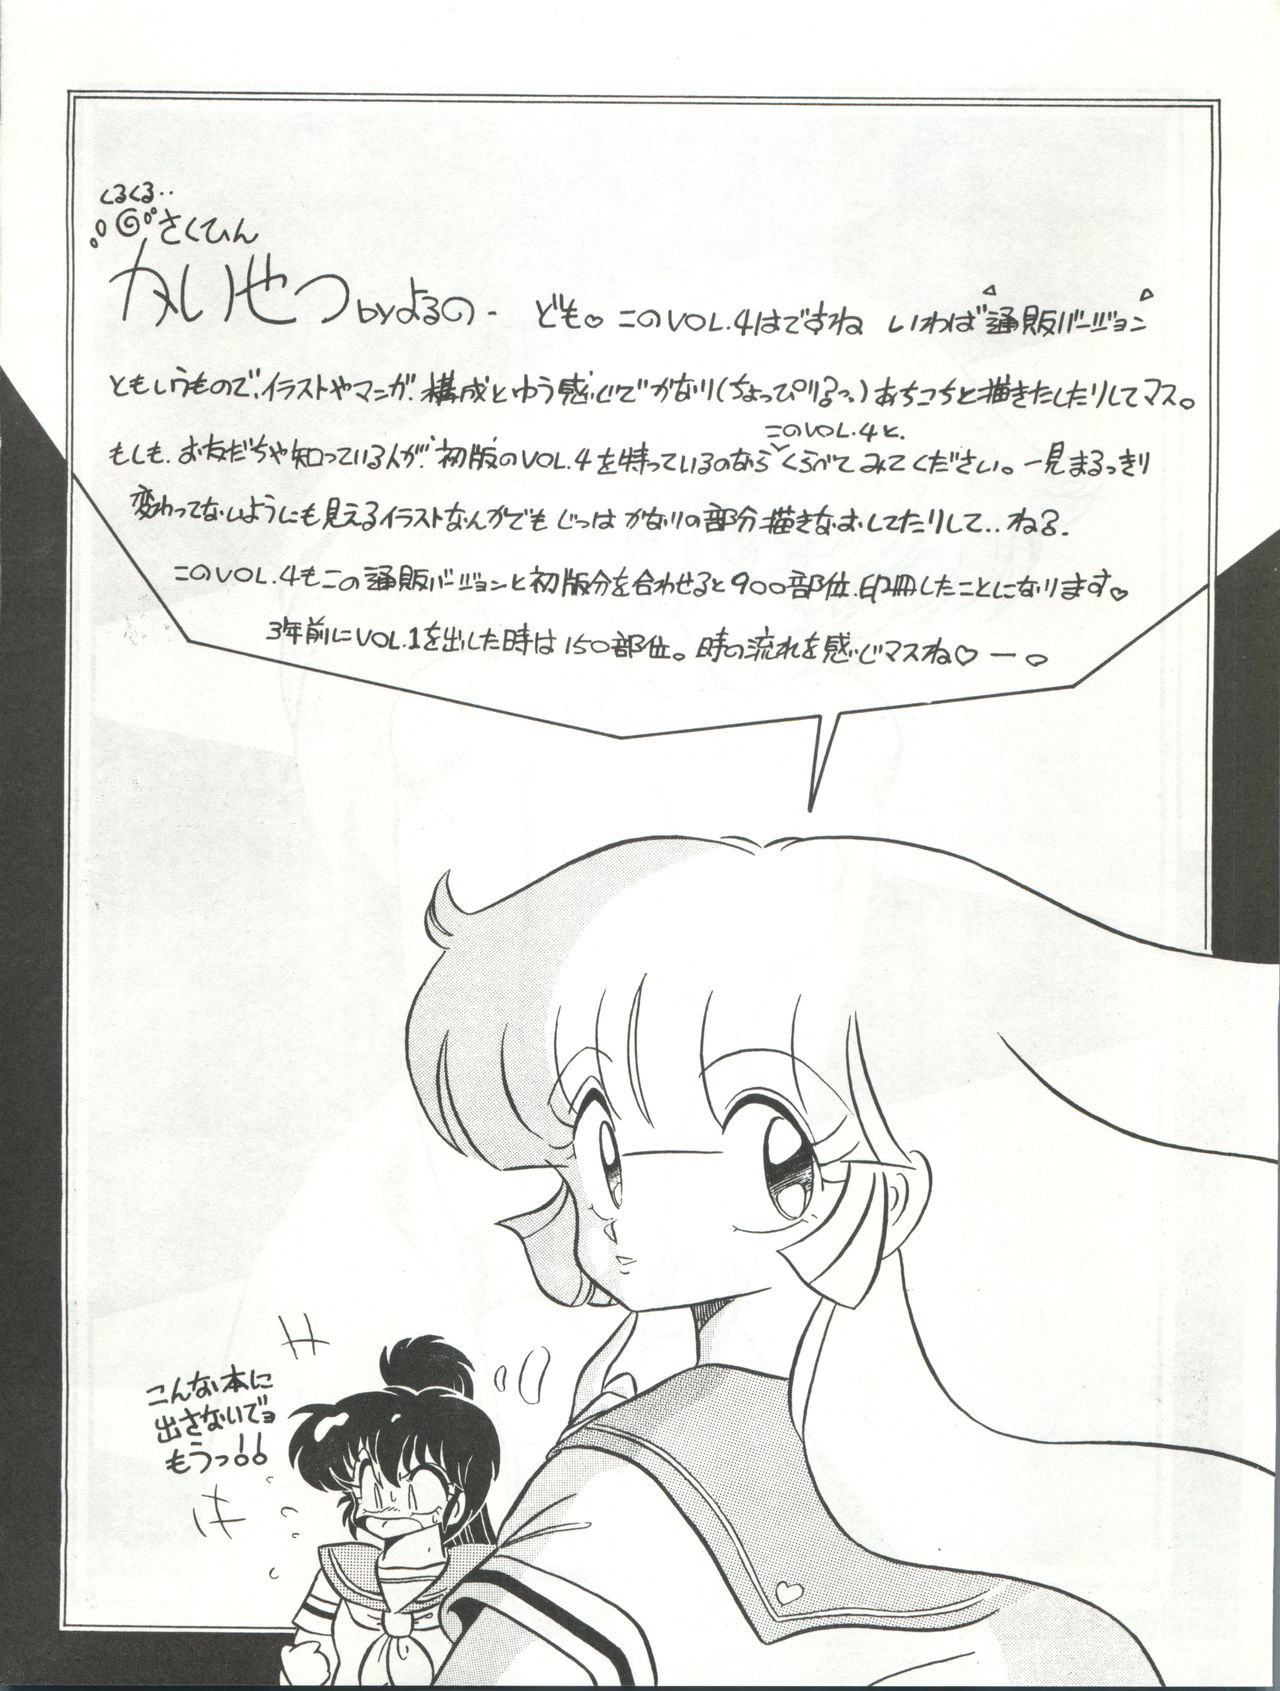 くるくる‥
さくひん
かいせつbyよるの- ども。このVOL.4はですね いわば"通販バージョン"
ともいうもので、イラストやマンガ、構成とゆう感じでかなり(ちょっぴり?っ)あちこちと描きたしたりしてマス。
もしも、お友だちや知っている人が、初版のVOL.4を持っているのなら このVOL.4と、くらべてみてください。一見まるっきり
変わってないようにも見えるイラストなんかでも じつは かなりの部分描きなおしてたりして‥ねる。
このVOL.4もこの通販バージョンと初版分を合わせると900部位、印冊したことになります♡
3年前にVOL.1を出した時は150部位。時の流れを感じマスね♡ー。
こんな本に
出さないでョ
もうっ!!